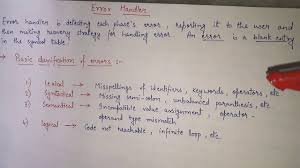 Error Handler
Error handler is detecting each phase's error, reporting it to the user and
then making recovery strategy for handling error. An error is a blank entry
in the symbol table.
→ Basic classification of errors :-
1) Lexical → Misspellings of identifiers, keywords, operators, etc.
2) Syntactical → Missing semi-colon, unbalanced paranthesis, etc.
3) Semantical → Incompatible value assignment, operator-
operand type mismatch
4) logical → Code not reachable, infinite loop, etc.